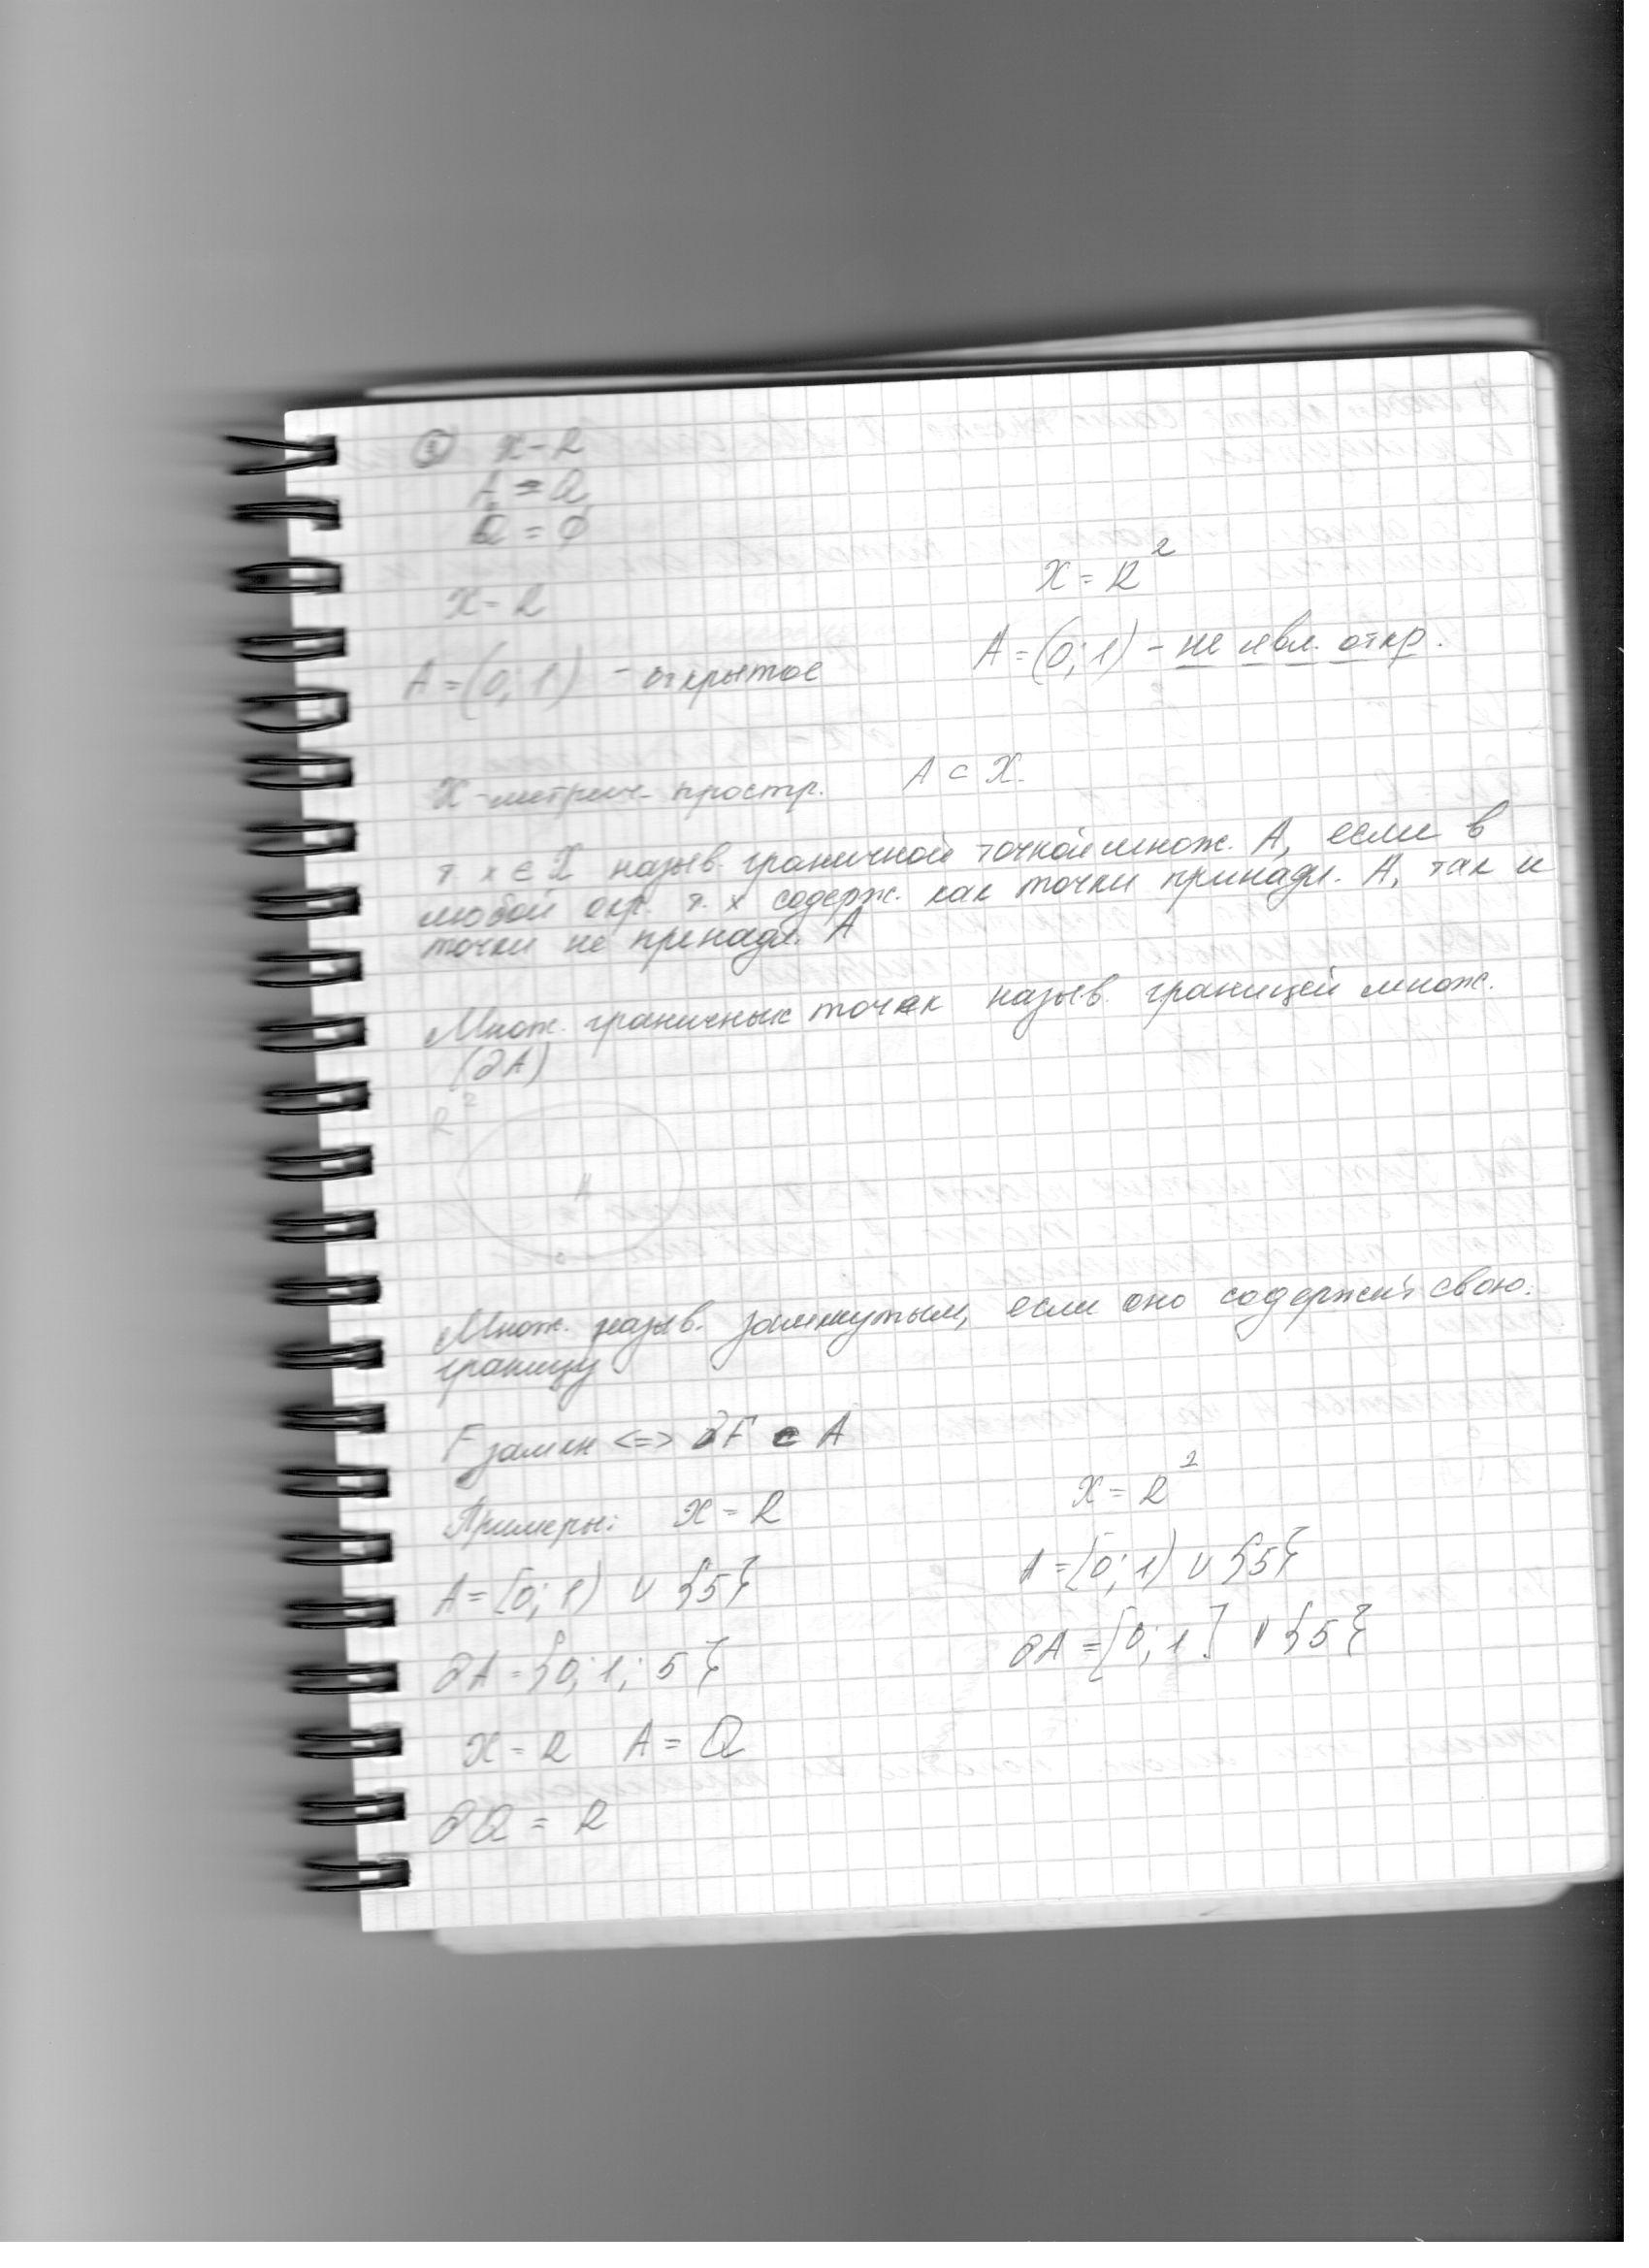 ③ X - R
A = Q
Q = ∅
X - R
X = R²
A = (0; 1) - открытое
A = (0; 1) - не явл. откр.
X - метрич. простр. A ⊂ X.
т. x ∈ X назыв. граничной точкой множ. A, если в
любой окр. т. x содерж. как точки принадл. A, так и
точки не принадл. A
Множ. граничных точек назыв. границей множ.
(∂A)
R²
A
Множ. назыв. замкнутым, если оно содержит свою
границу
F замкн <=> ∂F ⊂ A
Примеры: X = R
X = R²
A = [0; 1) ∪ {5}
A = [0; 1) ∪ {5}
∂A = {0; 1; 5}
∂A = [0; 1] ∪ {5}
X = R A = Q
∂Q = R